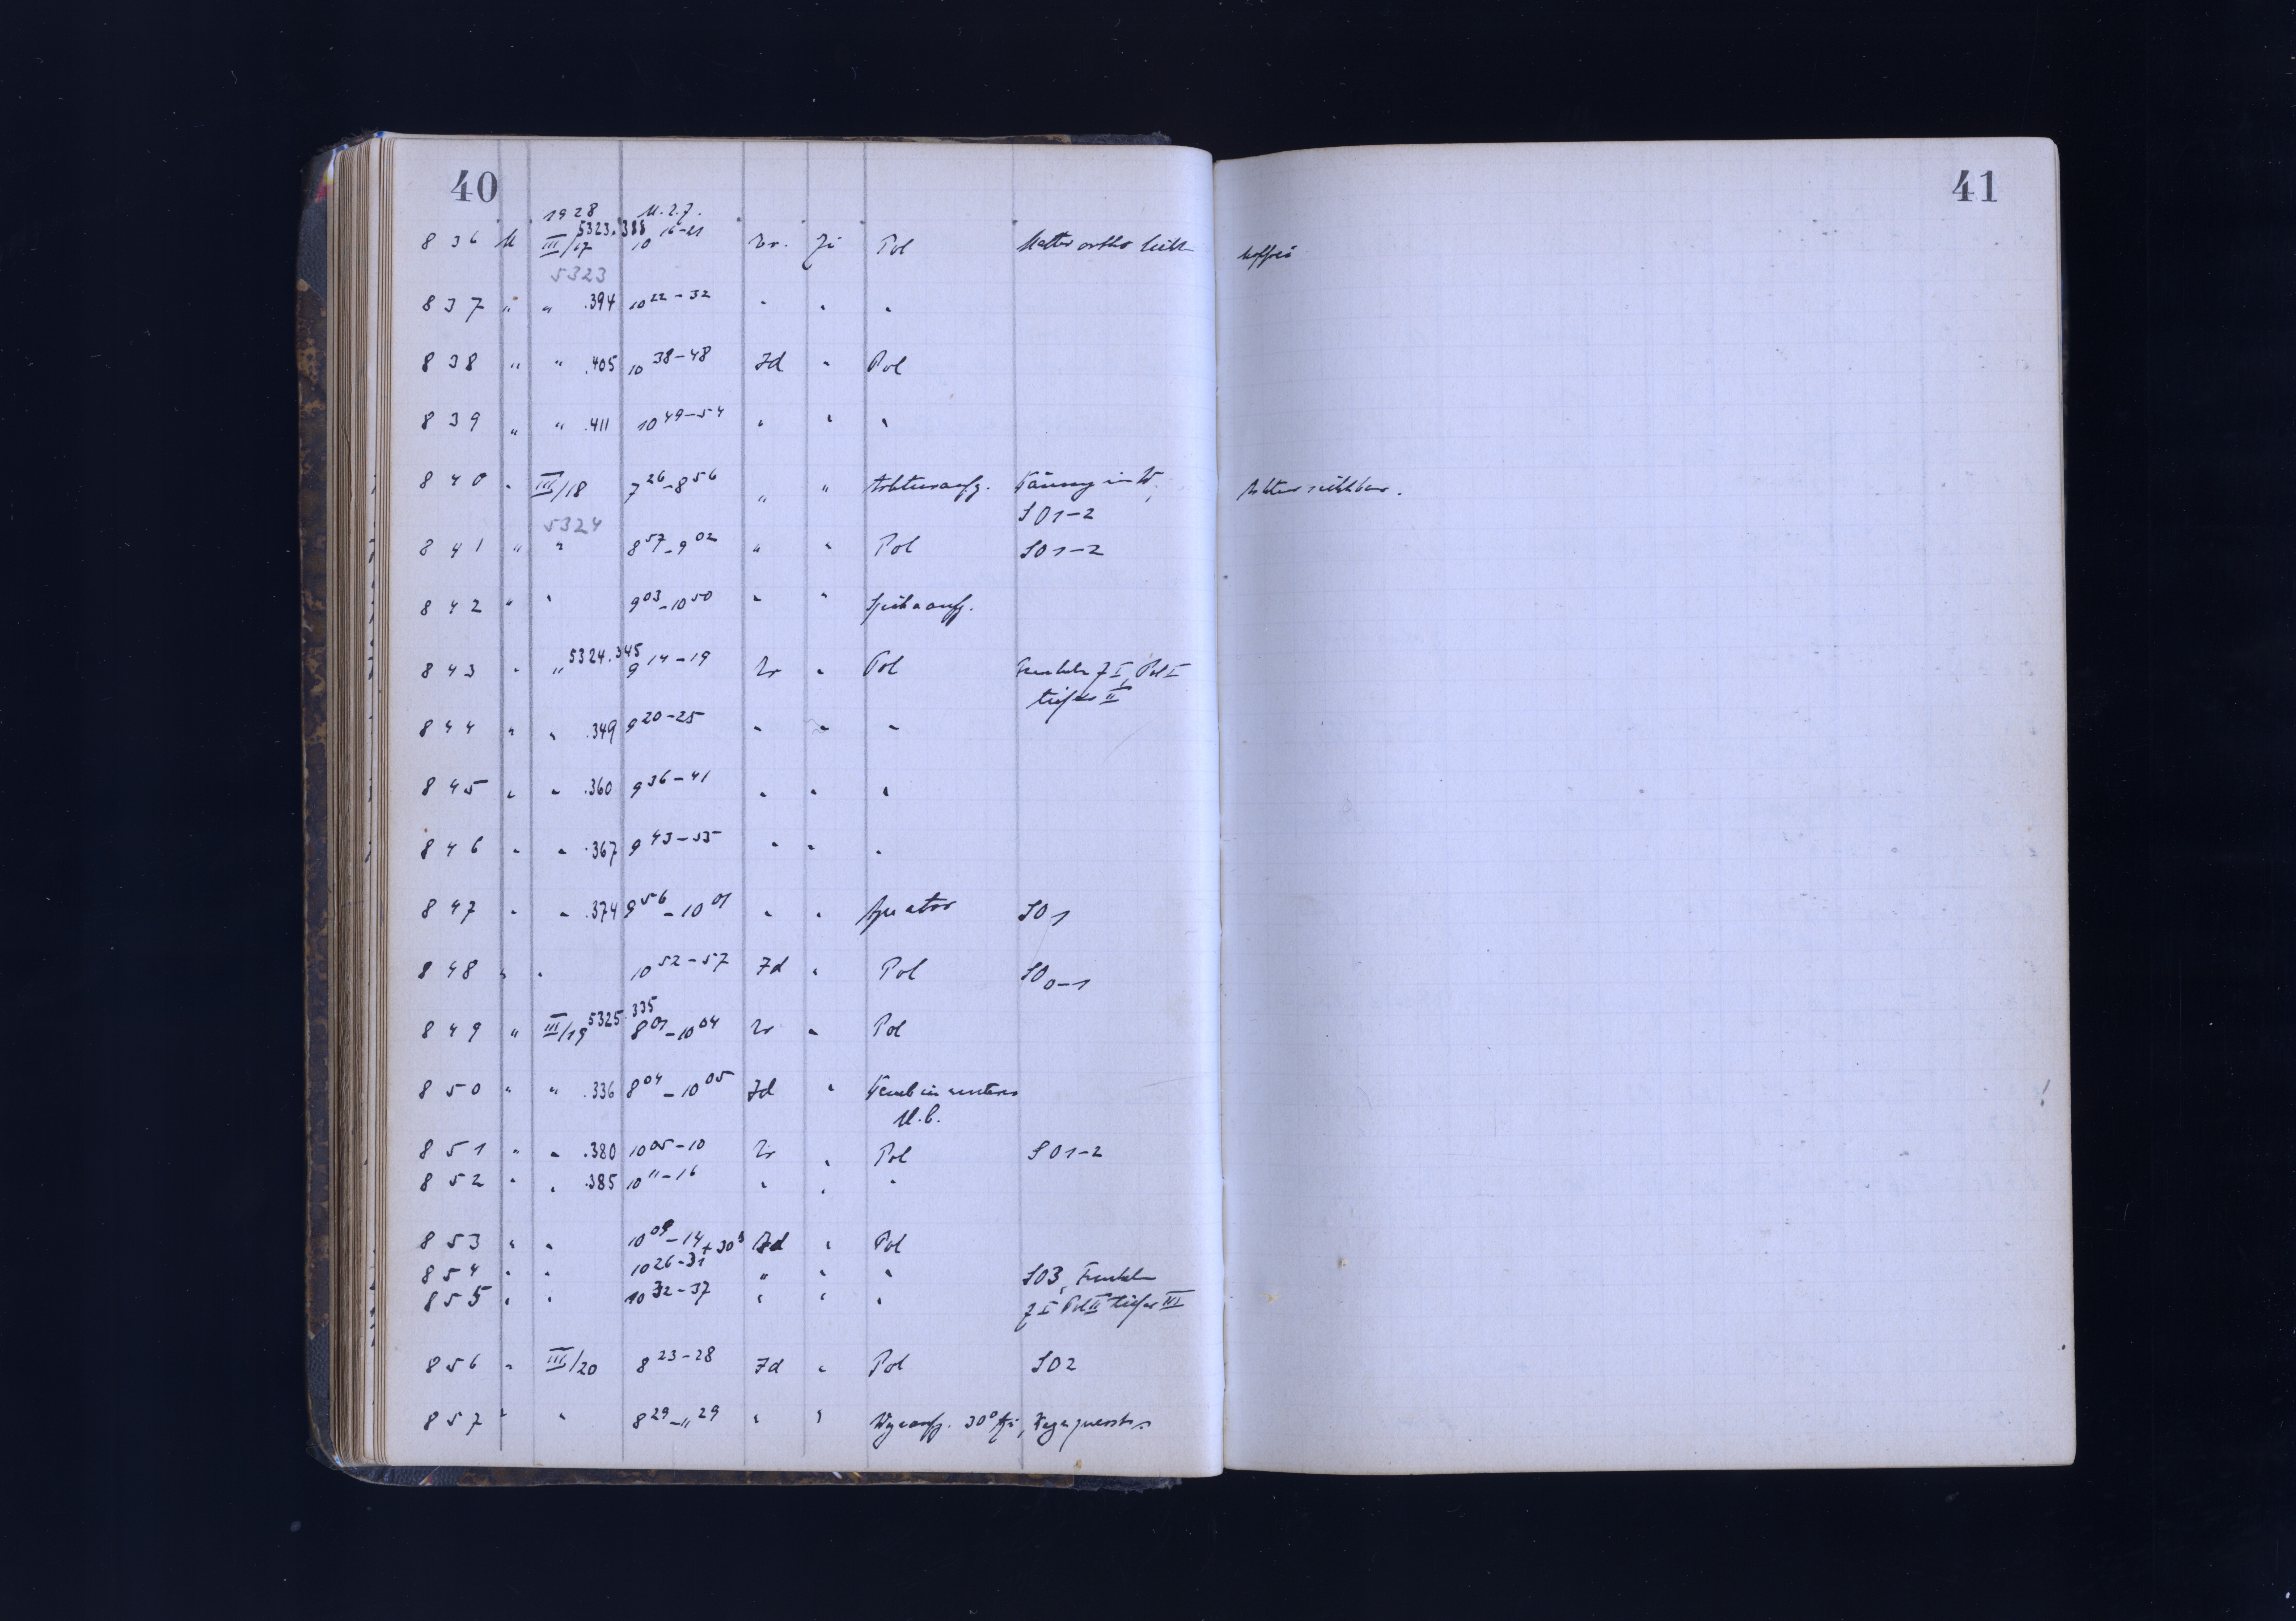 40
41
1928 M.Z.Z.
5323.388
836 M III/17 10 16-21 Zr. Zi Pol
5323
837 " " .394 10 22-32 " " "
838 " " .405 10 38-48 Id " Pol
839 " " .411 10 49-54 " " "
840 " III/18 7 26 - 8 56 " "
SO 1-2
5324
841 " " 8 57 - 9 02 " " Pol SO 1-2
842 " " 9 03 - 10 50 " "
5324.345
843 " " 9 14-19 Zr " Pol I, Pol I
tiefer II
844 " " .349 9 20-25 " " "
845 " " .360 9 36-41 " " "
846 " " .367 9 43-53 " " "
847 " " .374 9 56 - 10 01 " " SO 1
848 " " 10 52-57 Id " Pol SO 0-1
5325.335
849 " III/19 8 01 - 10 04 Zr " Pol
850 " " .336 8 04 - 10 05 Id "
851 " " .380 10 05-10 Zr " Pol SO 1-2
852 " " .385 10 11-16 " " "
853 " " 10 09-14 + 30 s Id " Pol
854 " " 10 26-31 " " " SO 3,
855 " " 10 32-37 " " " I Pol II tiefer III
856 " III/20 8 23-28 Id " Pol SO 2
857 " " 8 29 - 11 29 " " 30°